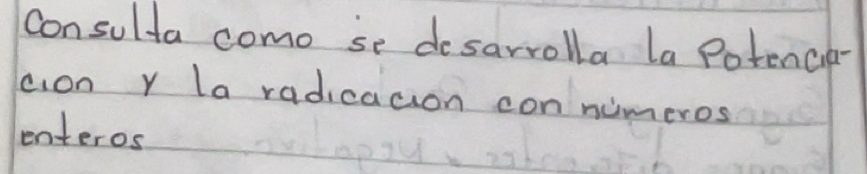 Consulta como se desarrolla la Potencia-
cion y la radicacion con números
enteros